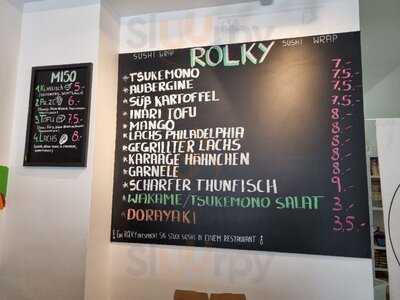 MISO
1. KLASSISCH 5.-
2. PILZE 6.-
3. TOFU 7.5
4. LACHS 8.-
SUSHI WRAP ROLKY SUSHI WRAP
TSUKEMONO 7.-
AUBERGINE 7.5.-
SÜß KARTOFFEL 7.5.-
INARI TOFU 8.-
MANGO 8.-
LACHS PHILADELPHIA 8.-
GEGRILLTER LACHS 8.-
KARAAGE HÄHNCHEN 8.-
GARNELE 8.-
SCHARFER THUNFISCH 9.-
WAKAME/TSUKEMONO SALAT 3.-
DORAYAKI 3,5.-
EIN ROLKY ENTSPRICHT 5-6 STÜCK SUSHI IN EINEM RESTAURANT